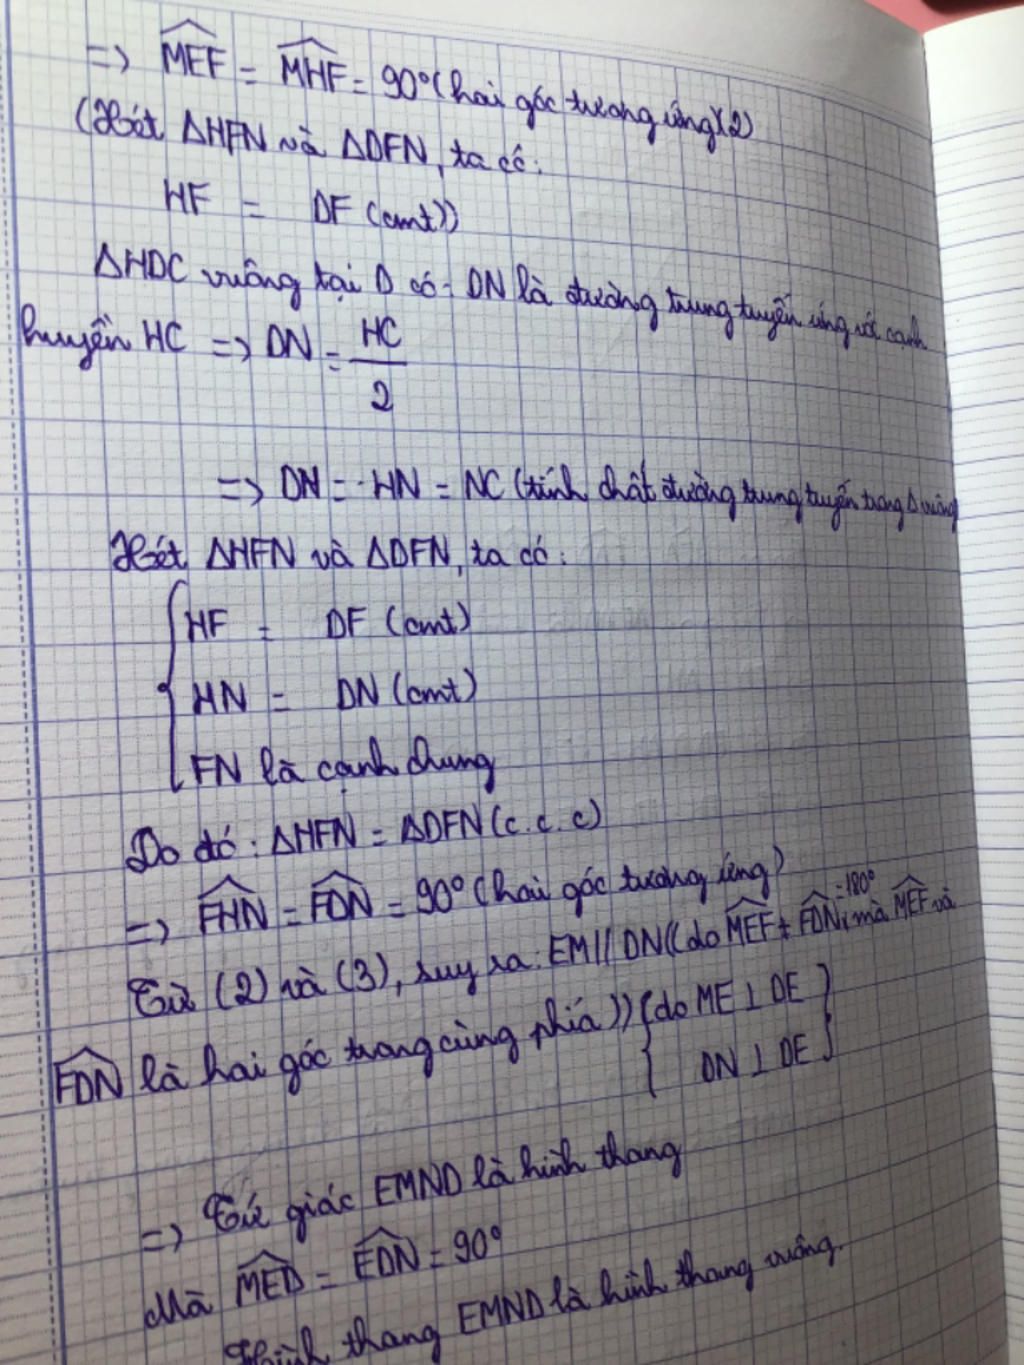 => MEF = MHF = 90° (hai góc tương ứng)(2)
(Xét ΔHFN và ΔDFN, ta có:
HF = DF (cmt))
ΔHDC vuông tại D có: DN là đường trung tuyến ứng với cạnh
huyền HC => DN = HC/2
=> DN = HN = NC (tính chất đường trung tuyến trong Δ vuông
Xét ΔHFN và ΔDFN, ta có:
HF = DF (cmt)
HN = DN (cmt)
FN là cạnh chung
Do đó: ΔHFN = ΔDFN (c.c.c)
=> FHN = FDN = 90° (hai góc tương ứng)
Từ (2) và (3), suy ra: EM // DN ((do MEF + FDN = 180°, mà MEF và
FDN là hai góc trong cùng phía)) {do ME ⊥ DE
DN ⊥ DE}
=> Tứ giác EMND là hình thang
Mà MED = EDN = 90°
Hình thang EMND là hình thang vuông.